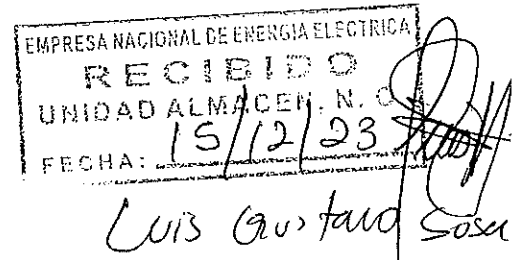 EMPRESA NACIONAL DE ENERGIA ELECTRICA
RECIBIDO
UNIDAD ALMACEN. N. O
FECHA: 15/12/23
Luis Gustavo Sosa